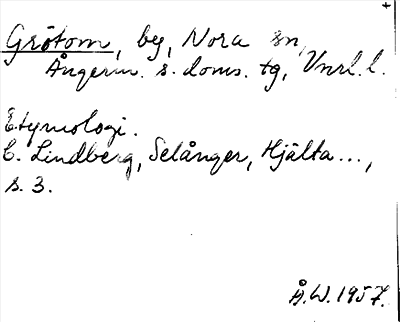 Grötom, by, Nora sn,
Ångerm. s. doms. tg, Vnrl. l.
Etymologi.
C. Lindberg, Selånger, Hjälta...,
s. 3.
Å.W. 1957.